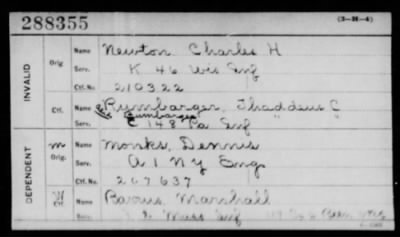 288355 (3-21-4)
INVALID
Orig.
Name Newton Charles H
Serv. K 46 Wis Inf
Ctf. No. 210322
Ctf.
Name Rumbarger, Thaddeus C
Rumbarger
Serv. C 148 Pa Inf
DEPENDENT
M
Orig.
Name Monks, Dennis
Serv. A 1 N Y Eng
Ctf. No. 267637
W
Ctf.
Name Barrus Marshall
Serv. Mass Inf